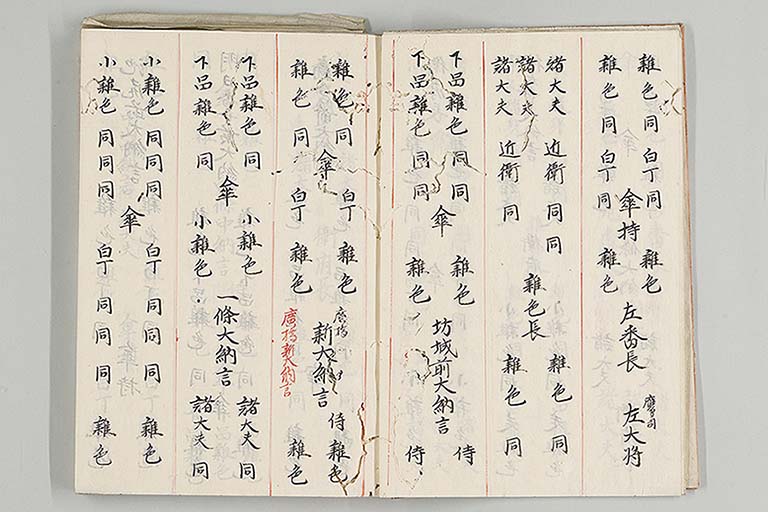 雜色 同 白丁 同 雜色
傘持 左番長 鷹司 左大将
雜色 同 白丁 同 雜色
諸大夫 近衛 同 同 雜色 同
諸大夫 雜色長
諸大夫 近衛 同 雜色 同
下品雜色 同 同 雜色 侍
傘 坊城前大納言
下品雜色 同 同 雜色 侍
雜色 同 白丁 雜色 廣橋 侍 雜色
傘 新大納言
雜色 同 白丁 雜色 雜色
廣橋新大納言
下品雜色 同 小雜色 諸大夫 同
傘 一條大納言
下品雜色 同 小雜色 諸大夫 同
小雜色 同 同 同 白丁 同 同 同 雜色
傘
小雜色 同 同 同 白丁 同 同 同 雜色